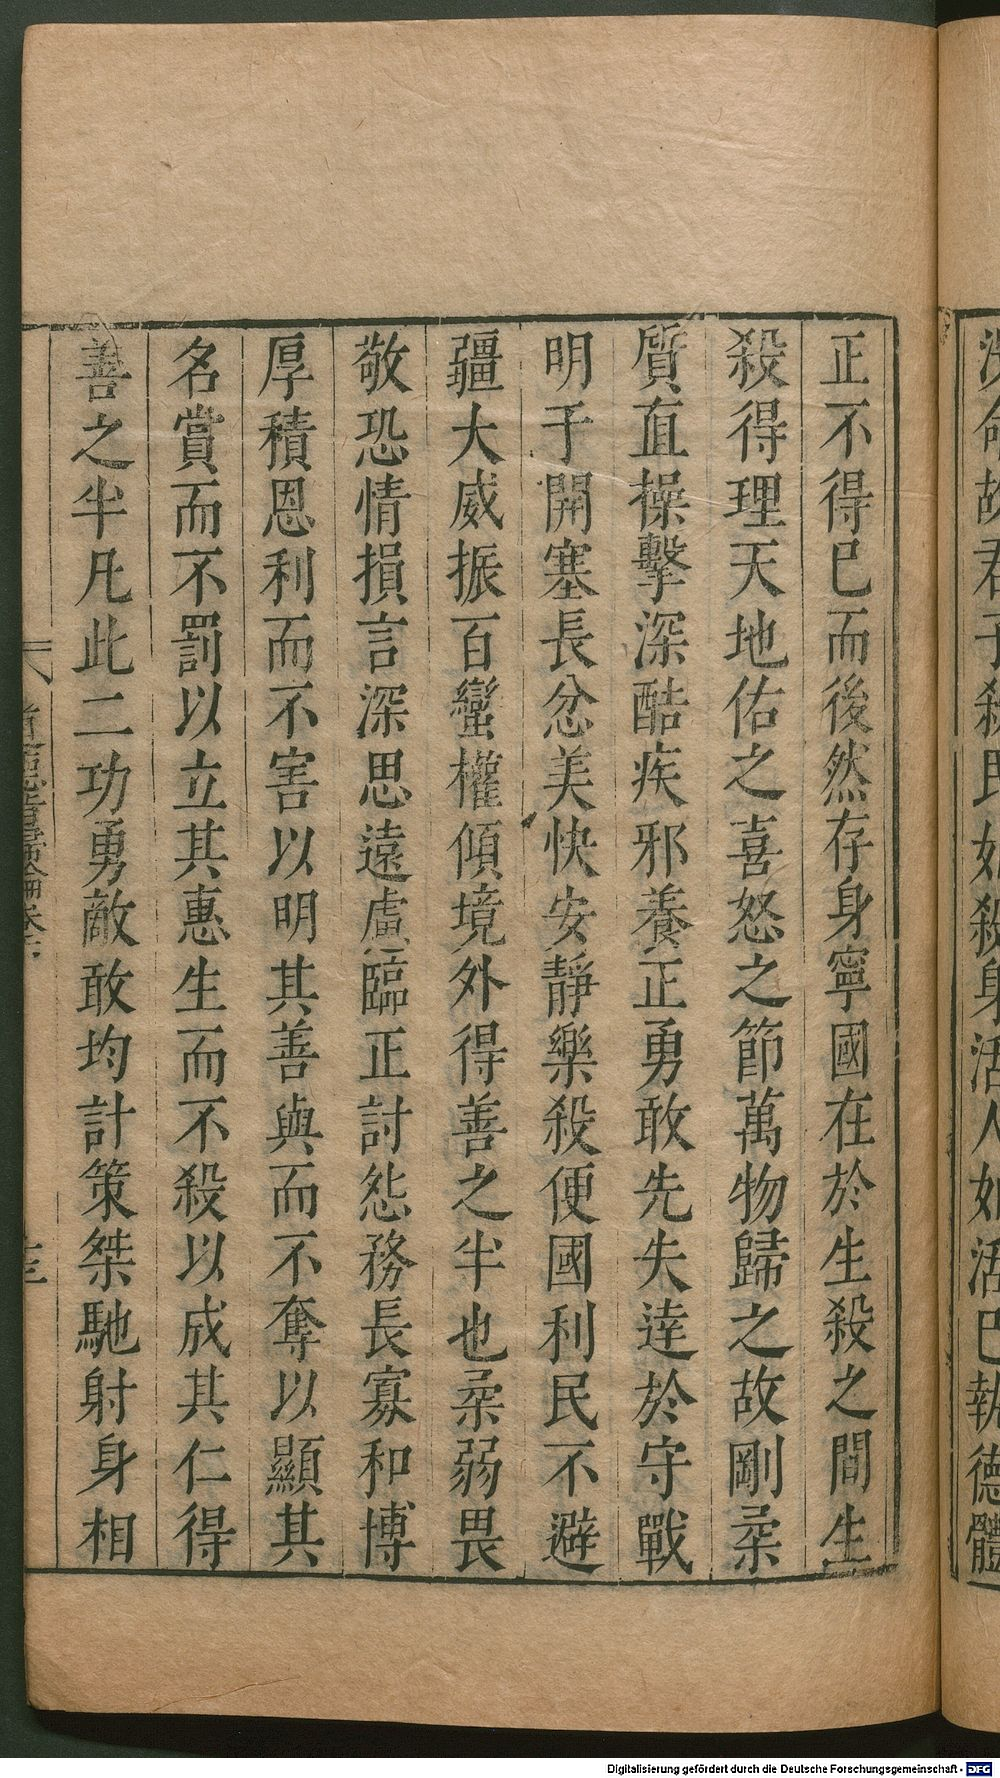 決命故君子殺民如殺身活人如活已執德體
正不得巳而後然存身寧國在於生殺之間生
殺得理天地佑之喜怒之節萬物歸之故剛柔
質直操擊深酷疾邪養正勇敢先失達於守戰
明于開塞長忿美快安靜樂殺便國利民不避
疆大威振百蠻權傾境外得善之半也柔弱畏
敬恐情損言深思遠慮臨正討怨務長寡和博
厚積恩利而不害以明其善與而不奪以顯其
名賞而不罰以立其惠生而不殺以成其仁得
善之半凡此二功勇敵敢均計策桀馳射身相
Digitalisierung gefördert durch die Deutsche Forschungsgemeinschaft - DFG